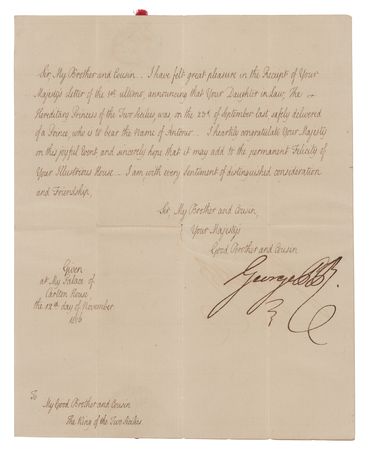 Sir, My Brother and Cousin. I have felt great pleasure in the Receipt of Your
Majesty's Letter of the 1st ultimo, announcing that Your Daughter in Law, The
Hereditary Princess of the Two Sicilies was, on the of September last safely delivered
of a Prince, who is to bear the Name of I heartily congratulate Your Majesty
on this joyful Event and sincerely hope that it may add to the permanent Felicity of
Your Illustrious House. I am with every Sentiment of distinguished consideration
and Friendship,
Sir, My Brother and Cousin,
Your Majesty's
Good Brother and Cousin
George P R
Given
at My Palace of
Carlton House,
the 12th day of November
1816
To
My Good Brother and Cousin
The King of the Two Sicilies